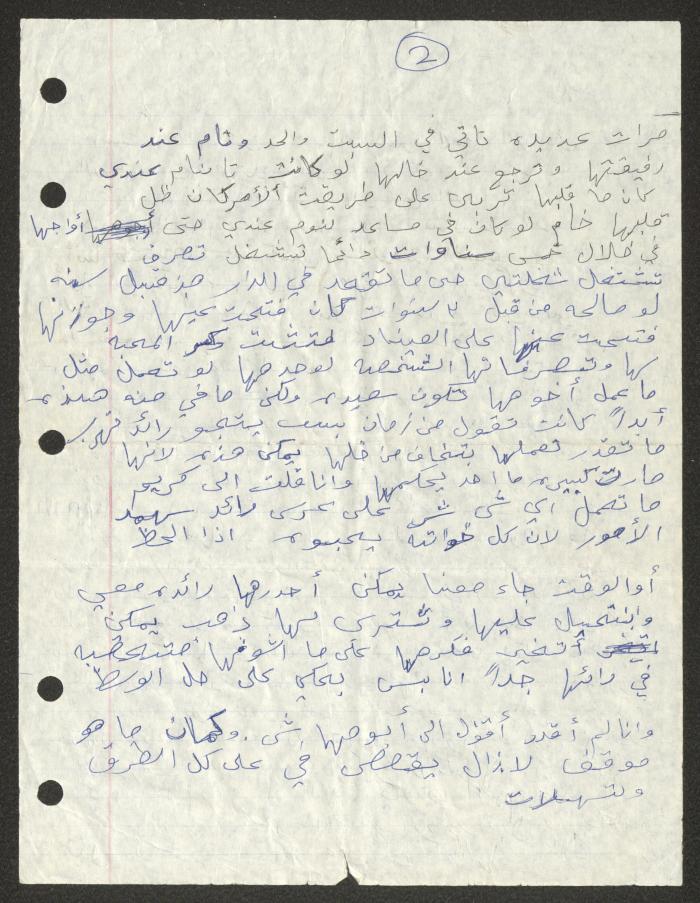 2
مرات عديده تاتي في السبت والحد وتنام عند
رفيقتها وترجع عند خالها لو كانت تا تنام عندي
كان ما قلبها تربى على طريقت الأمركان ظل
قلبها خام لو كان في مساعد لنوم عندي حتى أواجها
في خلال خمس سناوات دائما تشتغل تصرف
تشتغل حتى ما تقعد في الدار من قبل سنه
لو صالحه من قبل ٣ سنوات كان فتحت عينها وجوزتها
فتحت عينها على العيناد المحبه
لها وتصرفاتها الشخصه لوحدها لو تعمل مثل
ما عمل أخوها تكون سعيده ولكن ما في منه هلذه
أبداً كانت تقول من زمان بسب يتجو رائد
ما تقدر تعملها بتخاف من خلها يمكن هذه لانها
صارت كبيره ما احد يحكمها وانا قلت الى كريم
ما تعمل اي شي شر على عرس رائد سهد
الأمور لان كل خواته يحبوه اذا الحظ
أو الوقت جاء معنا يمكن أحدرها رائده معي
وانتحيل عليها وتشترى لها ذهب يمكن
أتغير فكرها على ما اشوفها متحظبه
في رائها جداً انا بس بحكي على حل الوسط
وانا لم أقدر أقول الى أبوها شى. وكمان ما هو
موقف لازال يقضى في على كل الطرق
وتسهلات